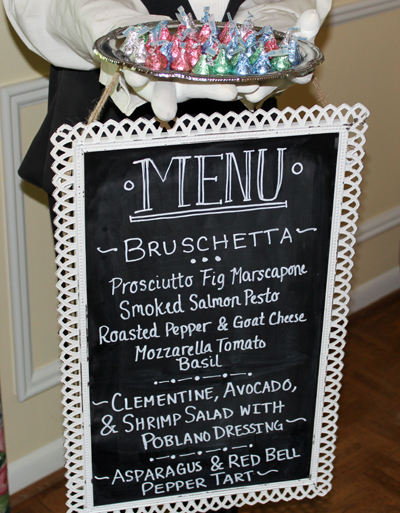 MENU
BRUSCHETTA
Prosciutto Fig Marscapone
Smoked Salmon Pesto
Roasted Pepper & Goat Cheese
Mozzarella Tomato
Basil
CLEMENTINE, AVOCADO,
& SHRIMP SALAD WITH
POBLANO DRESSING
ASPARAGUS & RED BELL
PEPPER TART